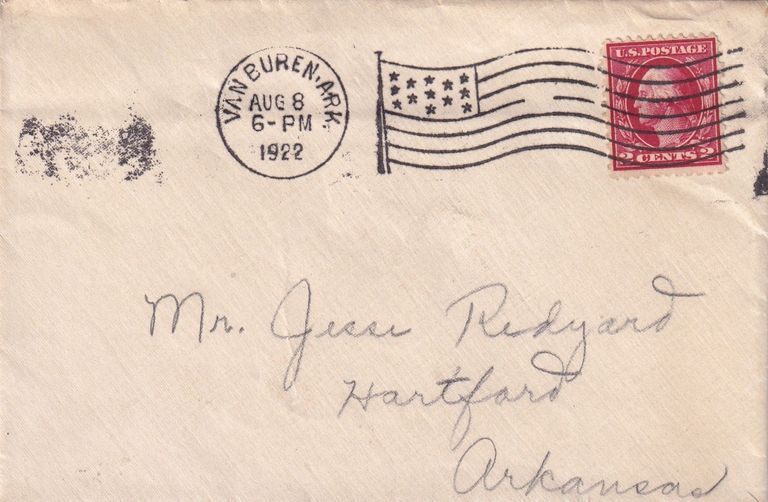 VAN BUREN, ARK.
AUG 8
6-PM
1922
U.S.POSTAGE
2 CENTS 2
Mr. Jesse Redyard
Hartford
Arkansas